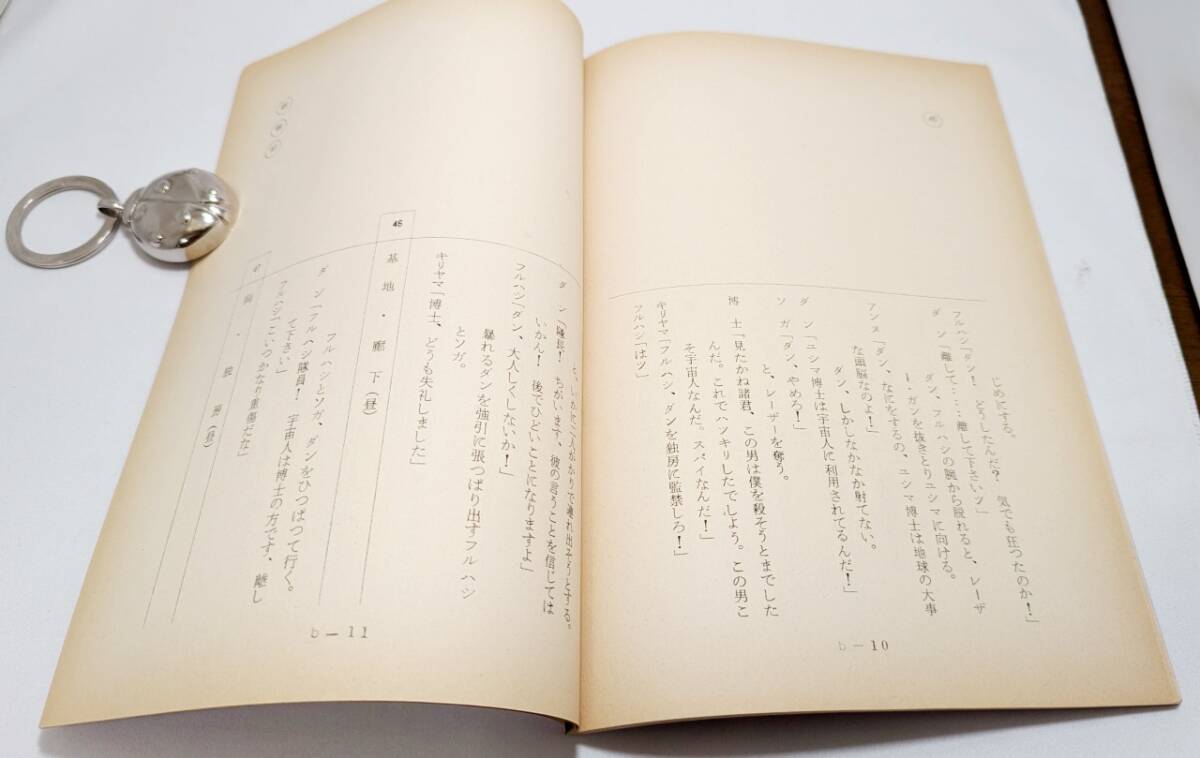 じめにする。
フルハシ「ダン!どうしたんだ?気でも狂つたのか!」
ダン「離して‥‥離して下さいッ」
ダン、フルハシの腕から殺れると、レーザ
ー・ガンを抜きとりユシマに向ける。
アンヌ「ダン、なにをするの、ユシマ博士は地球の大事
な頭脳なのよ!」
ダン、しかしなかなか射てない。
ダン「ユシマ博士は宇宙人に利用されてるんだ!」
ソガ「ダン、やめろ!」
と、レーザーを奪う。
博士「見たかね諸君、この男は僕を殺そうとまでした
んだ。これでハッキリしたでしよう。この男こ
そ宇宙人なんだ。スパイなんだ!」
キリヤマ「フルハシ、ダンを独房に監禁しろ!」
フルハシ「はッ」
b-10
二人がかりで連れ出そうとする。
ダン「隊長!ちがいます、彼の言うことを信じては
いかん!後でひどいことになりますよ」
フルハシ「ダン、大人しくしないか!」
暴れるダンを強引に張つぱり出すフルハシ
とソガ。
キリヤマ「博士、どうも失礼しました」
46
基地・廊下(昼)
フルハシとソガ、ダンをひつぱつて行く。
ダン「フルハシ隊員!宇宙人は博士の方です、離し
て下さい」
フルハシ「こいつかなり重傷だな」
47
同・独房(昼)
b-11